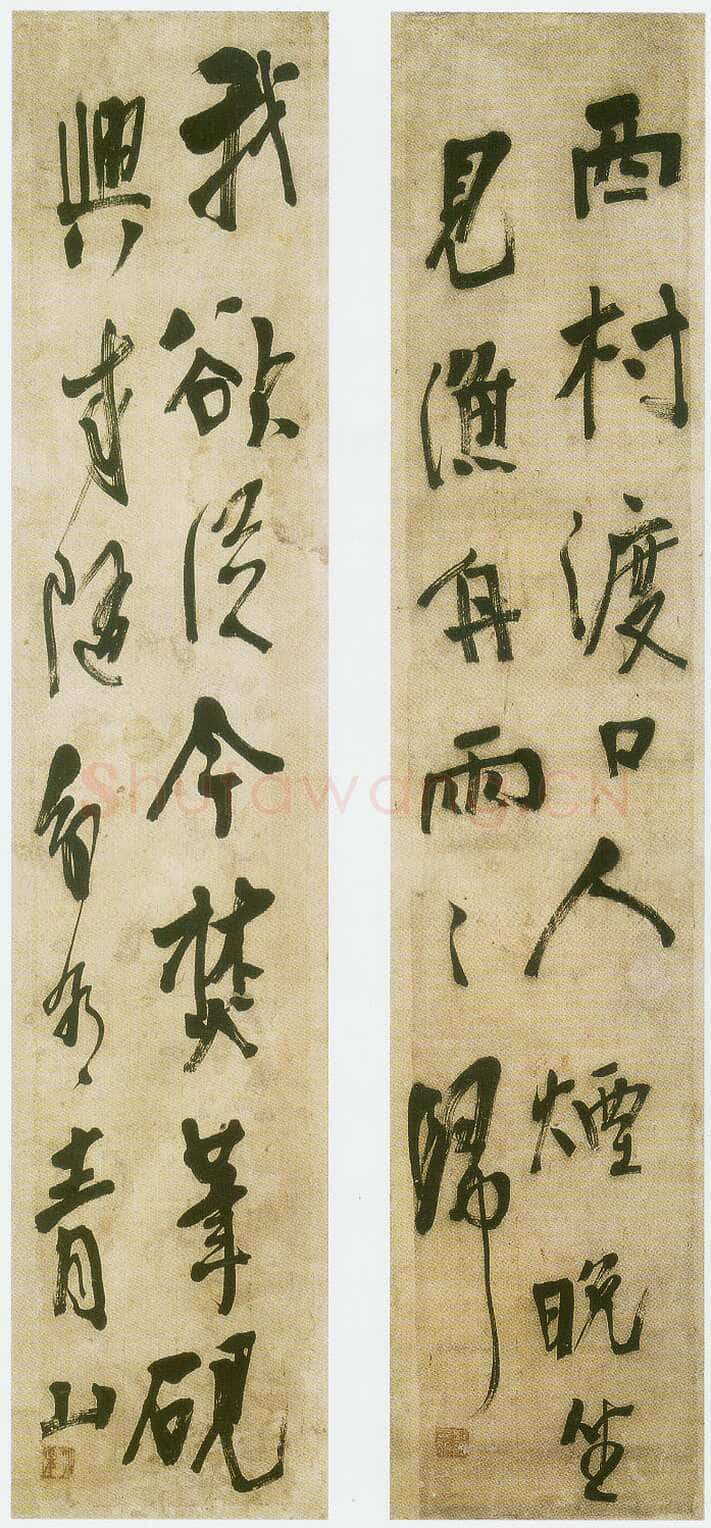 西村渡口人煙晚坐
見漁舟兩〻歸
我欲從今焚筆硯
興來隨分看青山
Shufawang.CN